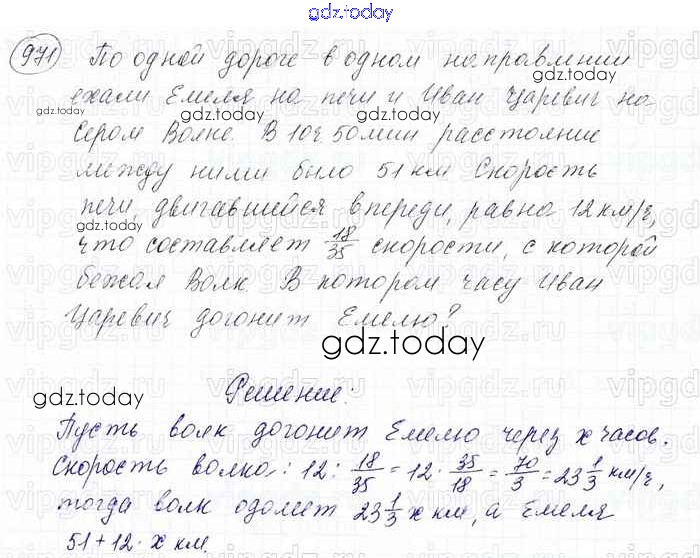 gdz.today
971 По одной дороге в одном направлении
ехали Емеля на печи и Иван Царевич на
gdz.today gdz.today
Сером Волке. В 10 ч. 50 мин расстояние
gdz.today
между ними было 51 км Скорость
печи, двигавшейся впереди, равна 12 км/ч,
что составляет 18/35 скорости, с которой
бежал Волк В котором часу Иван
Царевич догонит Емелю?
gdz.today
gdz.today
Решение.
Пусть волк догонит Емелю через x часов.
Скорость волка: 12 : 18/35 = 12 · 35/18 = 70/3 = 23 1/3 км/ч,
тогда волк одолеет 23 1/3 x км, а Емеля
51 + 12 · x км.